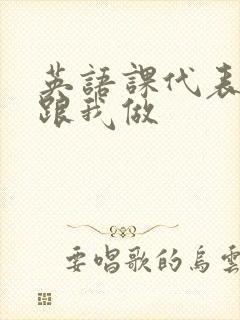 英語課代表
跟我做
要唱歌的烏雲